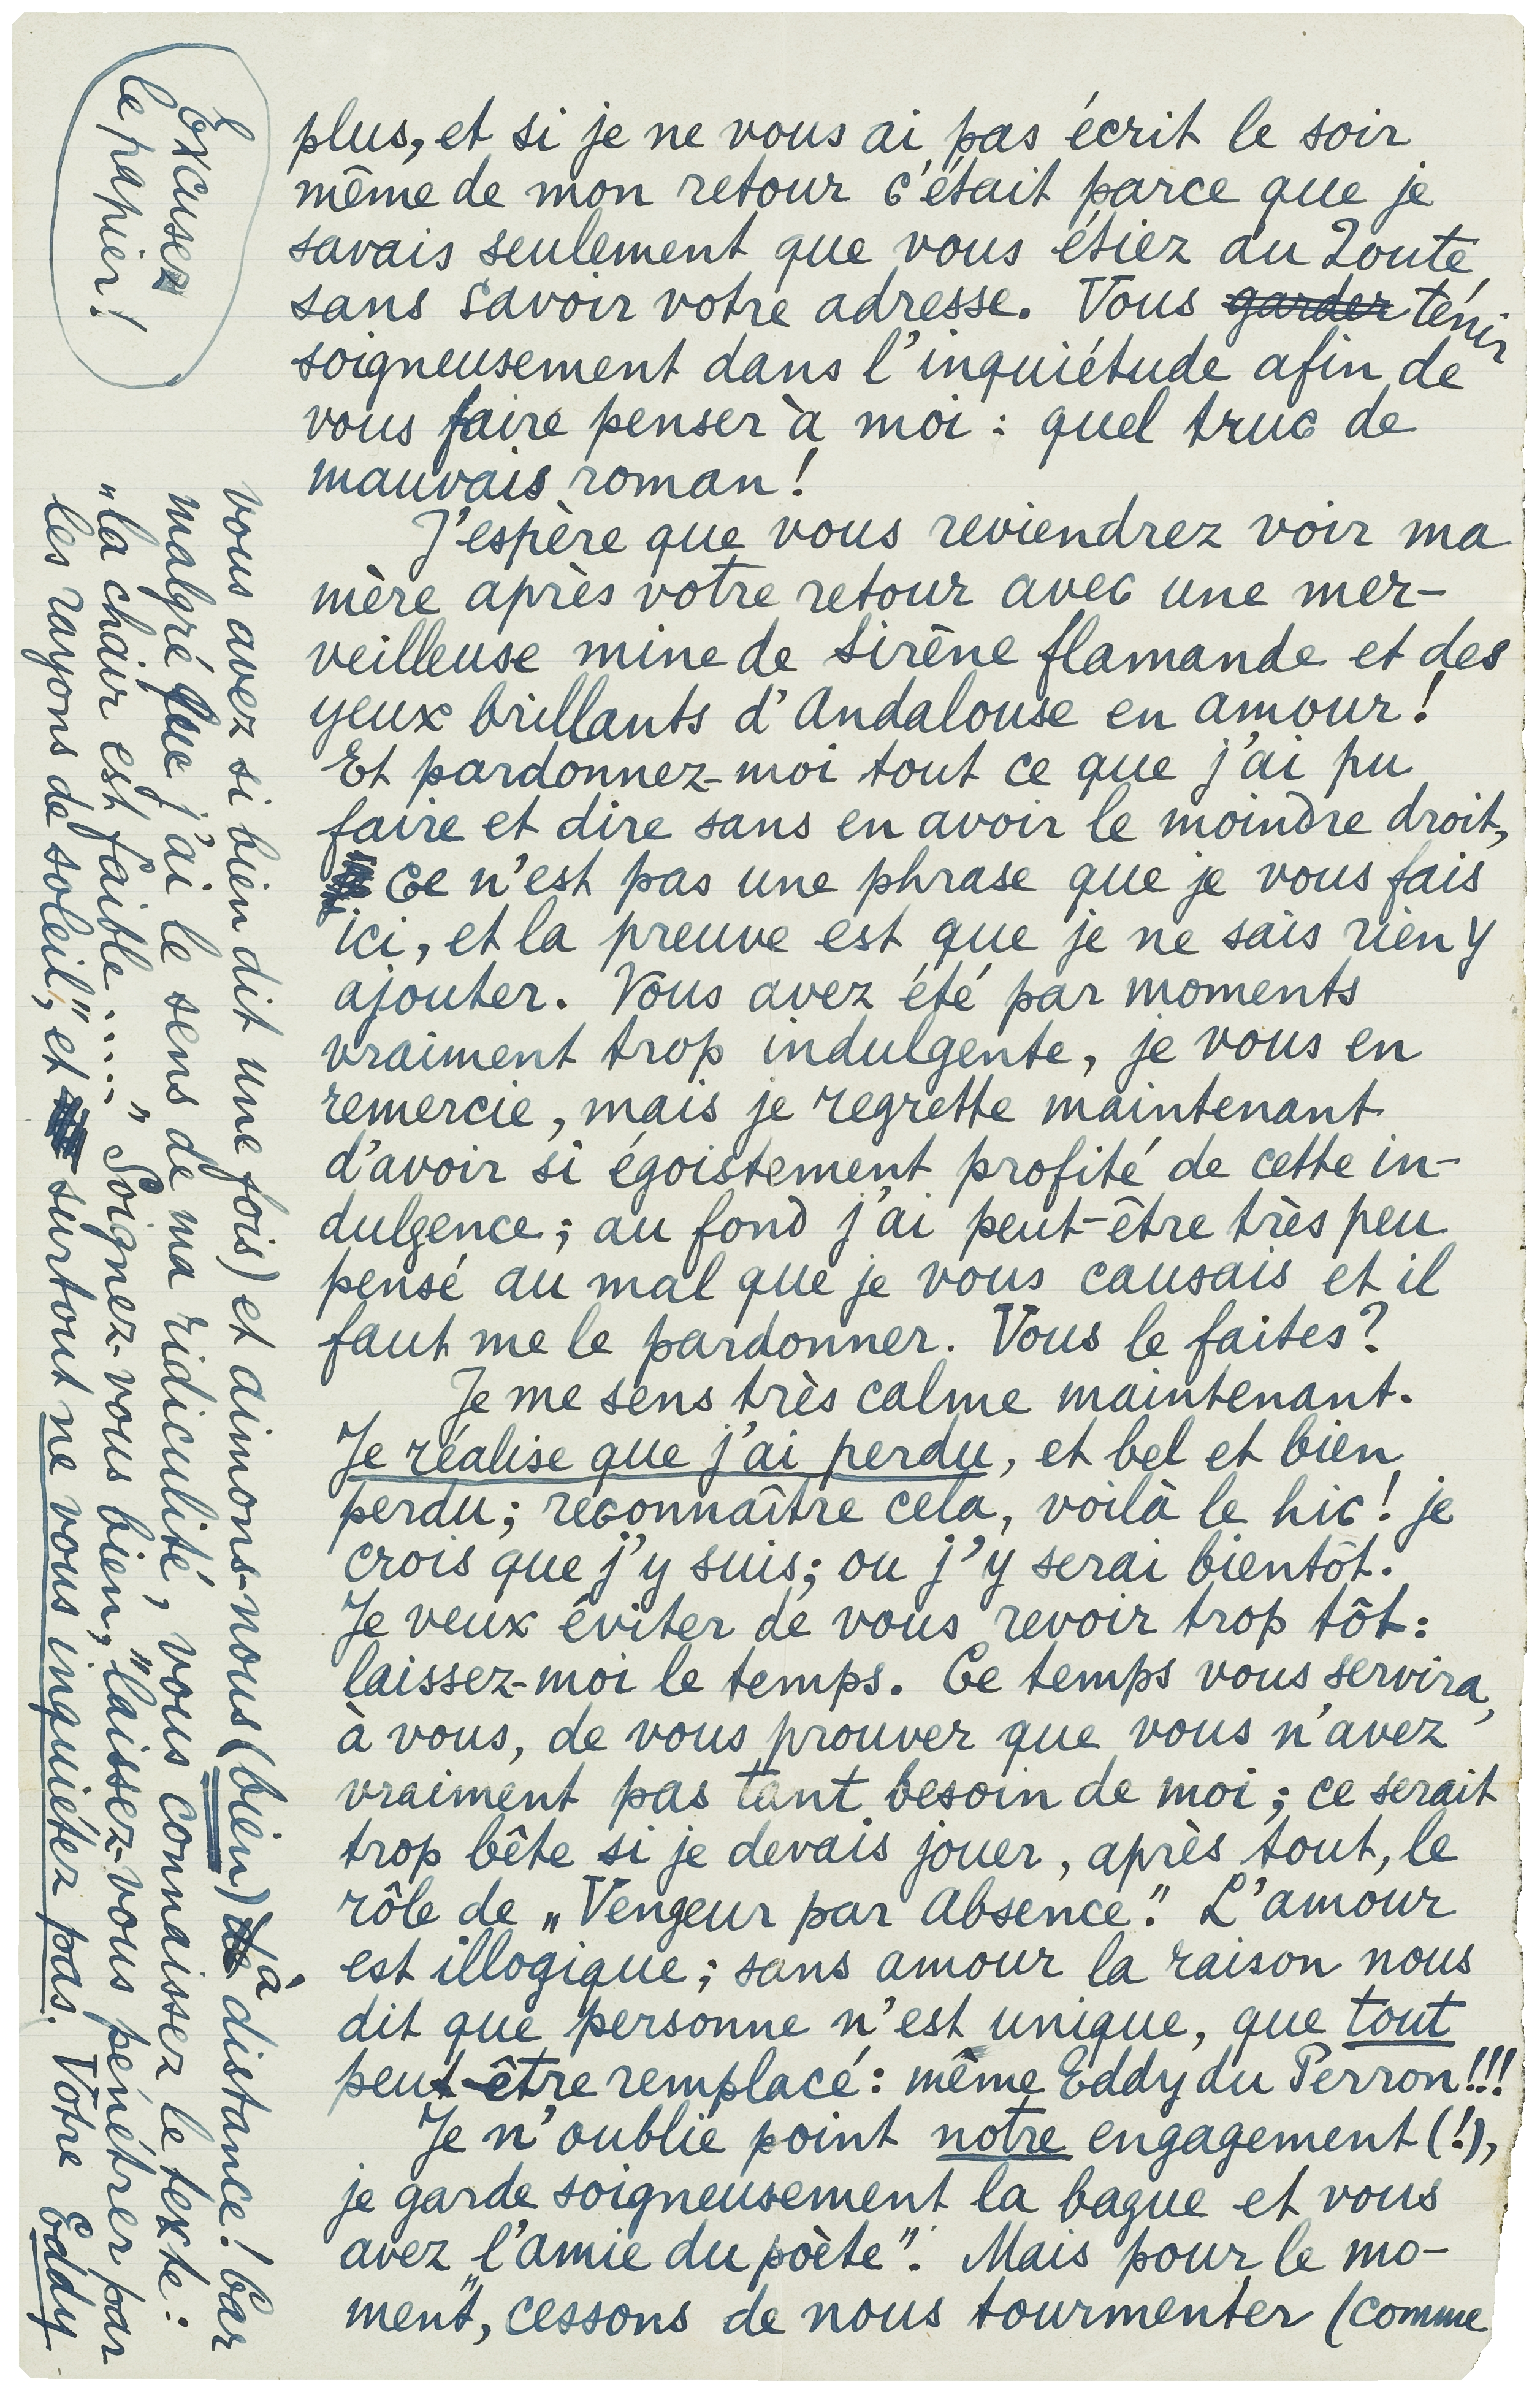 plus, et si je ne vous ai pas écrit le soir
même de mon retour c'était parce que je
savais seulement que vous étiez au Zoute,
sans savoir votre adresse. Vous garder tenir
soigneusement dans l'inquiétude afin de
vous faire penser à moi : quel truc de
mauvais roman !
J'espère que vous reviendrez voir ma
mère après votre retour avec une mer-
veilleuse mine de sirène flamande et des
yeux brillants d'Andalouse en amour !
Et pardonnez-moi tout ce que j'ai pu
faire et dire sans en avoir le moindre droit,
Ce n'est pas une phrase que je vous fais
ici, et la preuve est que je ne sais rien y
ajouter. Vous avez été par moments
vraiment trop indulgente, je vous en
remercie, mais je regrette maintenant
d'avoir si égoistement profité de cette in-
dulgence ; au fond j'ai peut-être très peu
pensé au mal que je vous causais et il
faut me le pardonner. Vous le faites ?
Je me sens très calme maintenant.
Je réalise que j'ai perdu, et bel et bien
perdu ; reconnaître cela, voilà le hic ! je
crois que j'y suis ; ou j'y serai bientôt.
Je veux éviter de vous revoir trop tôt :
laissez-moi le temps. Ce temps vous servira,
à vous, de vous prouver que vous n'avez
vraiment pas tant besoin de moi ; ce serait
trop bête si je devais jouer, après tout, le
rôle de „Vengeur par Absence". L'amour
est illogique ; sans amour la raison nous
dit que personne n'est unique, que tout
peut-être remplacé : même Eddy du Perron !!!
Je n'oublie point notre engagement (!),
je garde soigneusement la bague et vous
avez „l'amie du poète". Mais pour le mo-
ment, cessons de nous tourmenter (comme
vous avez si bien dit une fois) et aimons-nous (bien) à distance ! Car
malgré que j'ai le sens de ma ridiculité, vous connaissez le texte :
„la chair est faible ....," Soignez-vous bien, „laissez-vous pénétrer par
les rayons de soleil," et surtout ne vous inquiétez pas. Votre Eddy
Excusez
le papier !